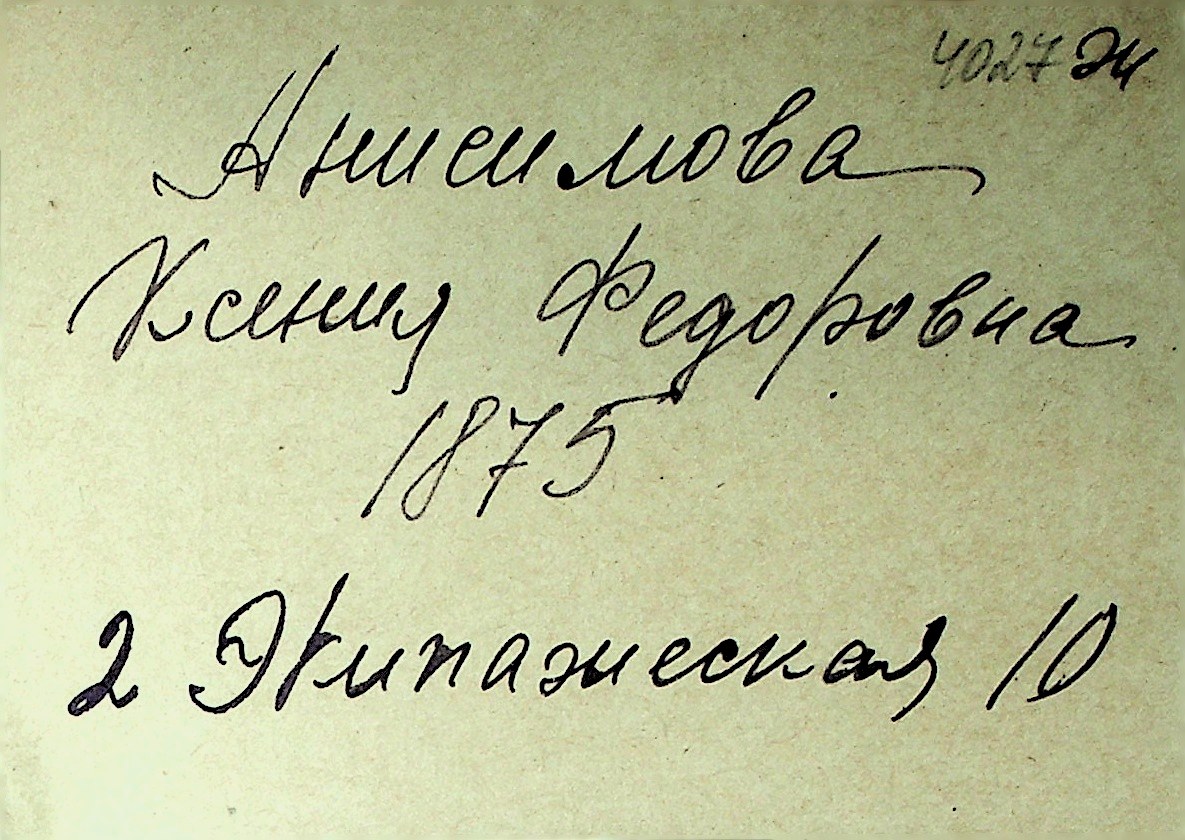 4027 Эк
Анисимова
Ксения Федоровна
1875
2 Экипажеская 10